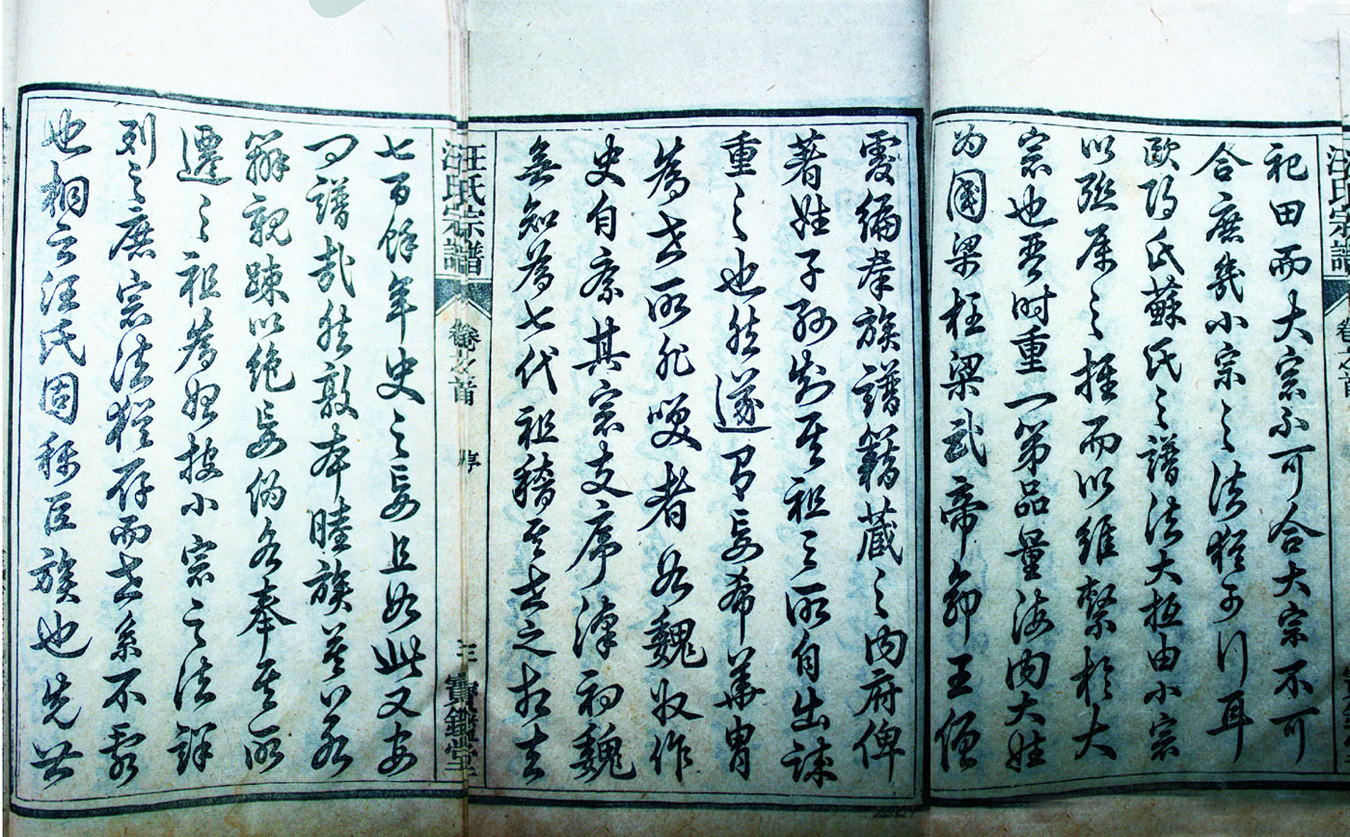 祀田而大宗不可合大宗不可
合庶幾小宗之法猶可行耳
歐陽氏蘇氏之譜法大抵由小宗
以班屬之推而以維繫於大
宗也晋时重一第品量海内大姓
为國梁柱梁武帝命王僧
孺編羣族譜籍藏之内府俾
著姓子孫知其祖之所自出誠
重之也然遂有妄希華胄
為世所非笑者如魏收作
史自序其宗支序漢初魏
無知為七代祖稽其世之相去
七百餘年史之妄且如此又安
譜哉然敦本睦族莫以
辨親踈以絶妄偽各奉其所
遷之祖為始按小宗之法詳
列之庶宗法猶存而世系不紊
也桐云汪氏固稱巨族也先世
汪氏宗譜
卷之首
序
三
寶鑑堂
汪氏宗譜
卷之首